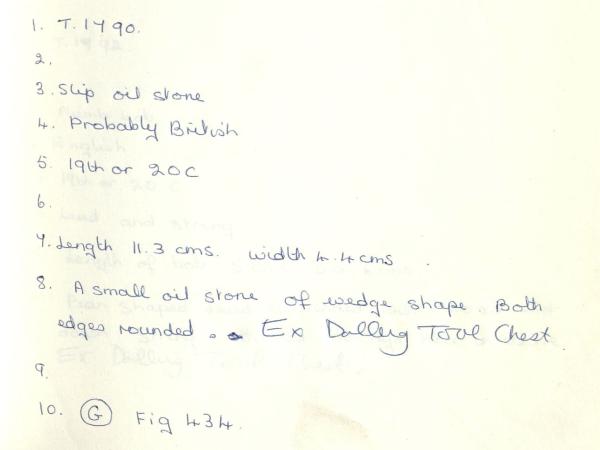 1. T.1790.
2.
3. Slip oil stone
4. Probably British
5. 19th or 20C
6.
7. Length 11.3 cms. width 4.4cms.
8. A small oil stone of wedge shape Both
edges rounded. Ex Tool Chest.
9.
10. G Fig 434.